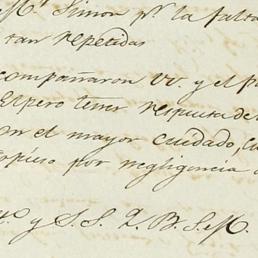 Mr. Simon pr. la falta
tan repetidas
compañaron VV. y el p
Espero tener respuesta de
on el mayor cuidado, cu
por negligencia
y S. S. Q. B. S. M.